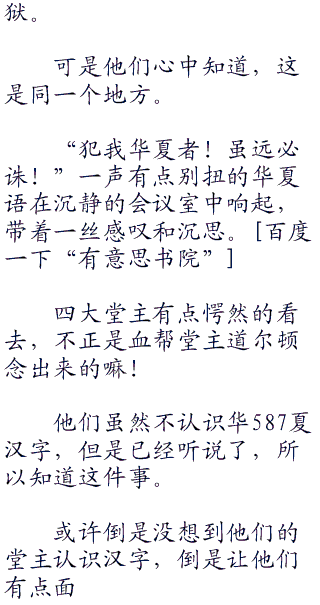 狱。
可是他们心中知道，这
是同一个地方。
“犯我华夏者！虽远必
诛！”一声有点别扭的华夏
语在沉静的会议室中响起，
带着一丝感叹和沉思。[百度
一下“有意思书院”]
四大堂主有点愕然的看
去，不正是血帮堂主道尔顿
念出来的嘛！
他们虽然不认识华587夏
汉字，但是已经听说了，所
以知道这件事。
或许倒是没想到他们的
堂主认识汉字，倒是让他们
有点面